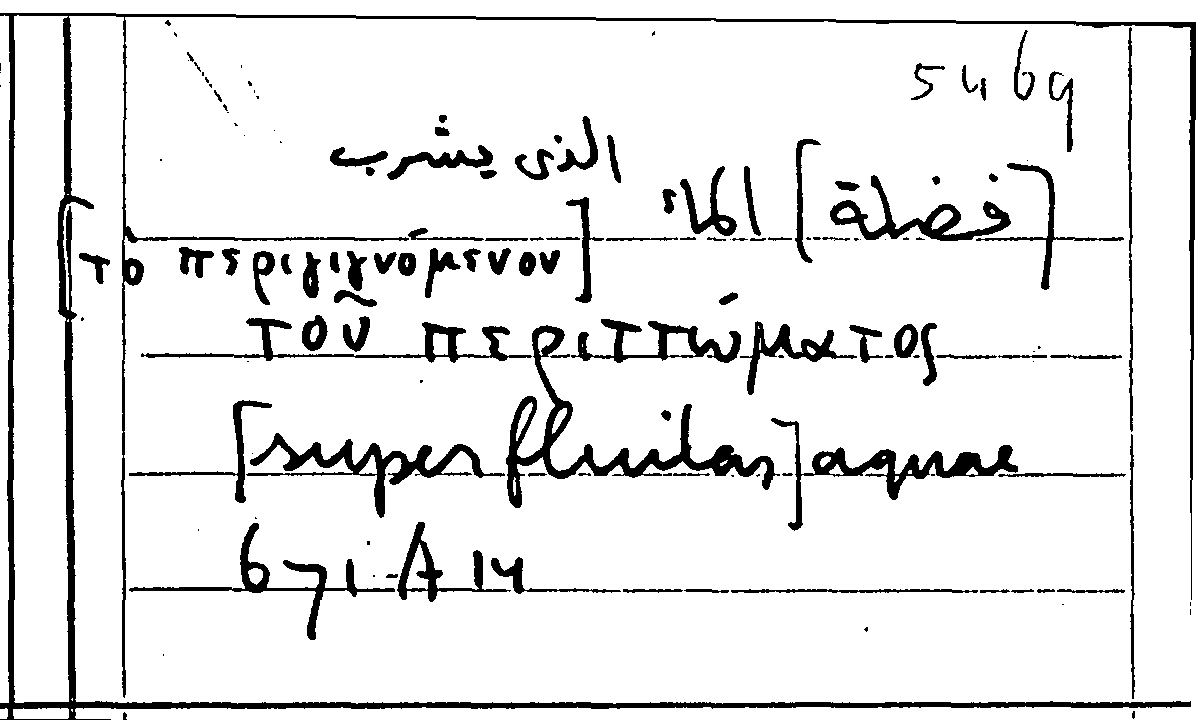 5469
[فضلة] الماء الذى يشرب
[τὸ περιγιγνόμενον]
τοῦ περιττώματος
[superfluitas] aquae
671 A 14